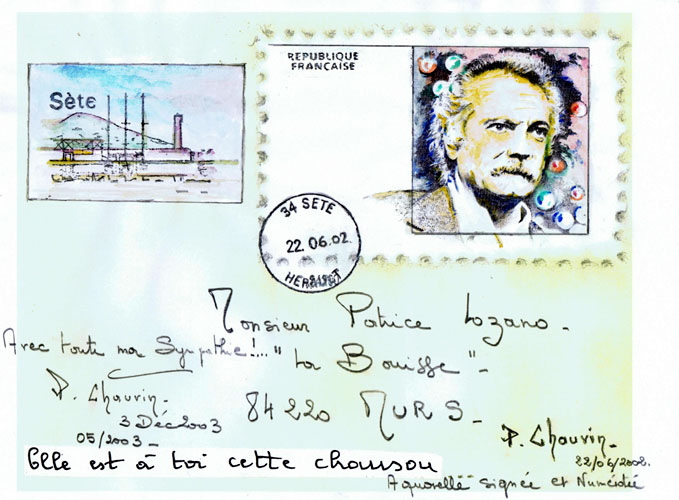 REPUBLIQUE
FRANÇAISE
Sète
34 SETE
22.06.02
HERAULT
Monsieur Patrice Lozano_
Avec toute ma Sympathie!... "La Bouisse"_
P. Chauvin_
3 Déc 2003
05/2003_
84220 MURS_
P. Chauvin_
22/06/2002.
Elle est à toi cette chanson
Aquarelle signée et Numérotée